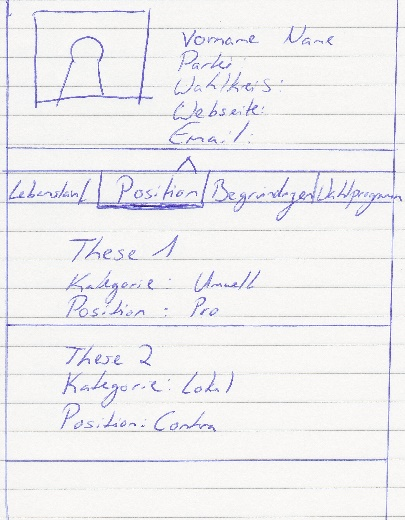 Vorname Name
Partei
Wahlkreis:
Webseite:
Email:
Lebenslauf Position Begründungen Wahlprogramm
These 1
Kategorie: Umwelt
Position: Pro
These 2
Kategorie: Lokal
Position: Contra